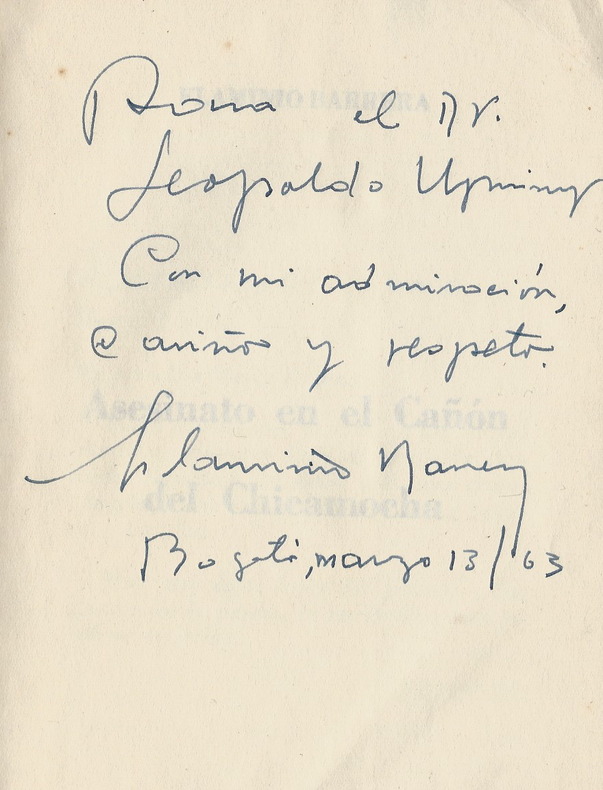 Para el Dr.
Leopoldo Uprimny
Con mi admiración,
cariño y respeto.
Flaminio Barrera
Bogotá, marzo 13/63
FLAMINIO BARRERA
Asesinato en el Cañón
del Chicamocha